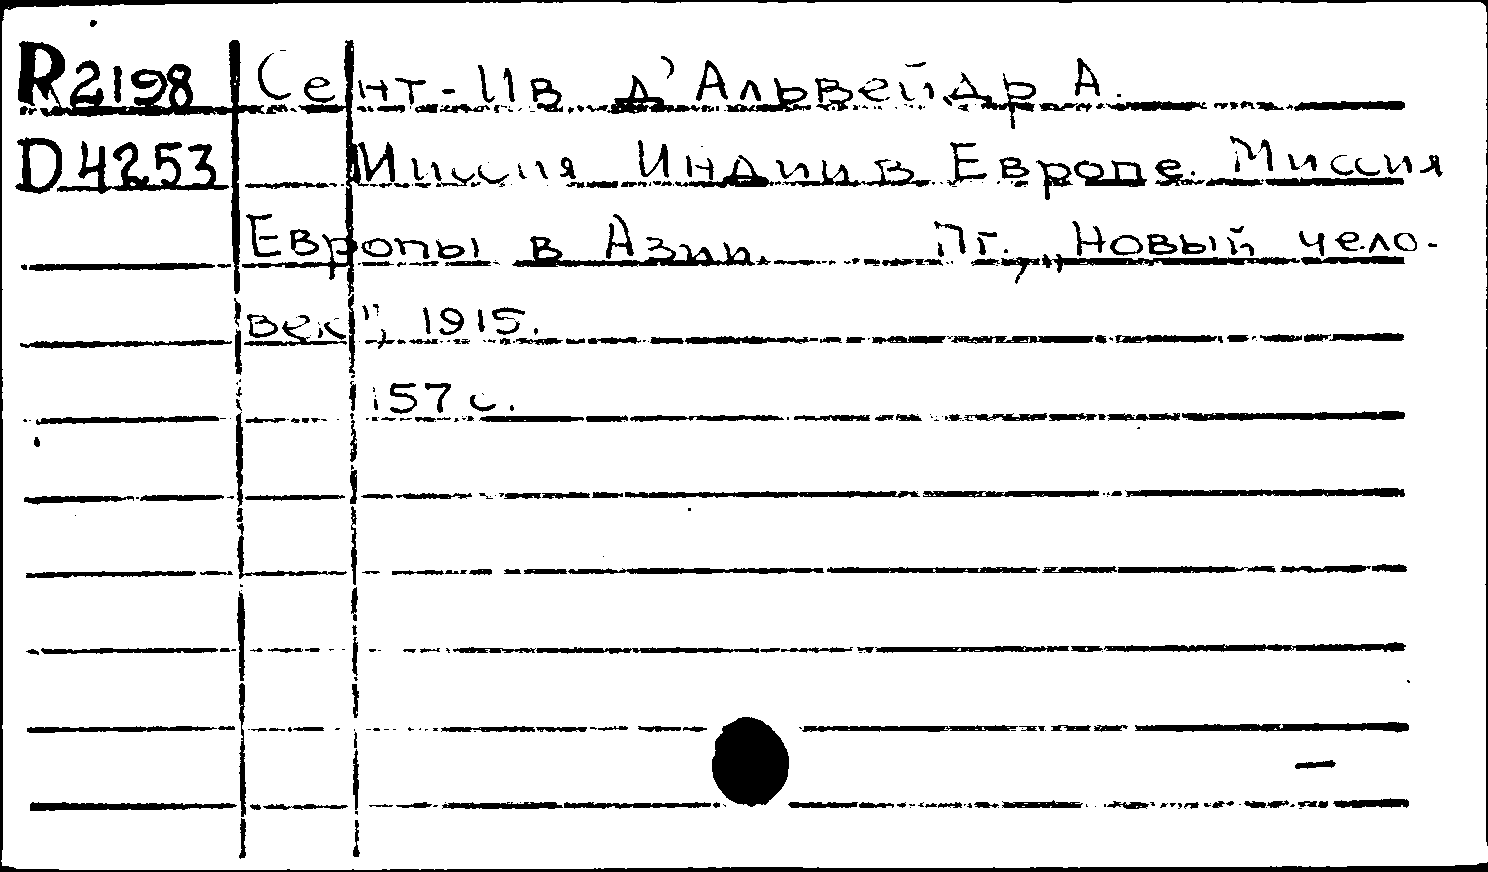 R2198 Сент-Ив д'Альвейдр А.
D4253 Миссия Индии в Европе. Миссия
Европы в Азии. Пг., „Новый чело-
век", 1915.
157 с.